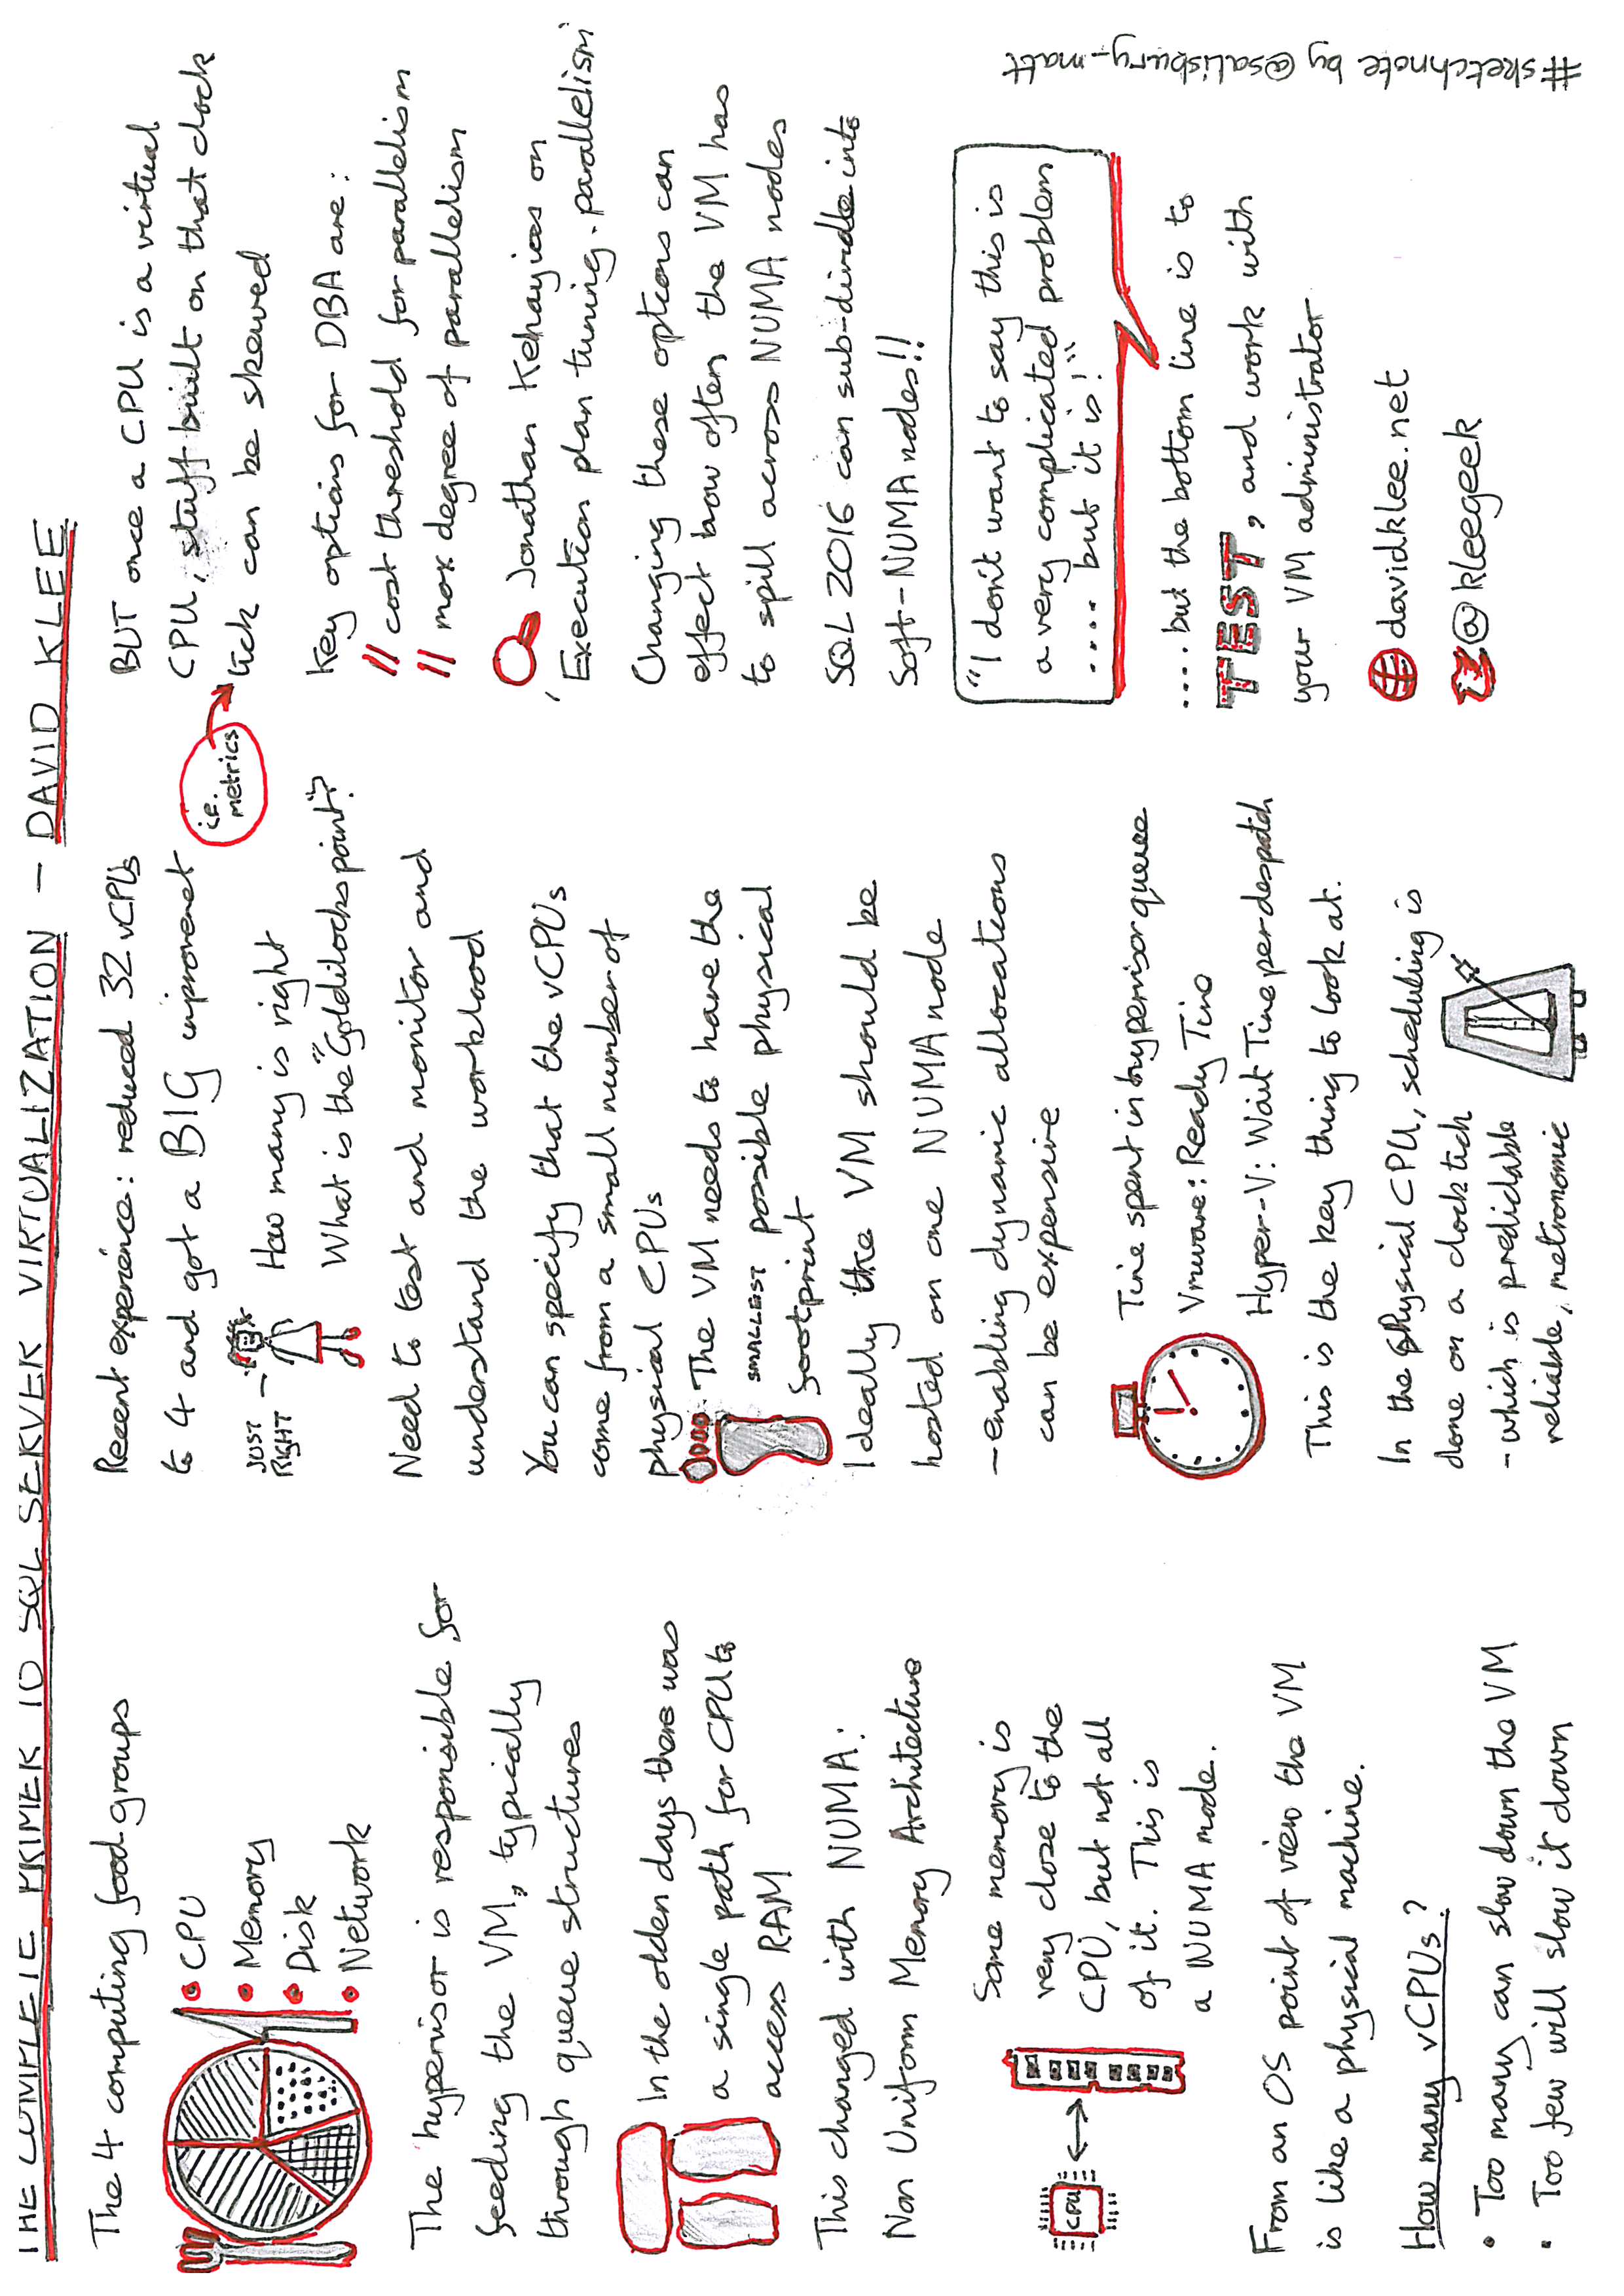 THE COMPLETE PRIMER TO SQL SERVER VIRTUALIZATION - DAVID KLEE
The 4 computing food groups
• CPU
• Memory
• Disk
• Network
The hypervisor is responsible for
feeding the VM, typically
through queue structures
In the olden days there was
a single path for CPU to
access RAM
This changed with NUMA:
Non Uniform Memory Architecture
Some memory is
very close to the
CPU, but not all
of it. This is
a NUMA node.
CPU
From an OS point of view the VM
is like a physical machine.
How many vCPUs?
• Too many can slow down the VM
• Too few will slow it down
Recent experience: reduced 32 vCPUs
to 4 and got a BIG improvemet
JUST
RIGHT
How many is right
What is the "Goldilocks point"?
Need to test and monitor and
understand the workload
You can specify that the vCPUs
come from a small number of
physical CPUs
The VM needs to have the
SMALLEST possible physical
footprint
Ideally the VM should be
hosted on one NUMA node
- enabling dynamic allocations
can be expensive
Time spent in hypervisor queue
Vmware: Ready Time
Hyper-V: Wait Time per despatch
This is the key thing to look at.
In the physical CPU, scheduling is
done on a clock tick
- which is predictable
reliable, metronomic
BUT once a CPU is a virtual
CPU, stuff built on that clock
tick can be skewed
i.e.
metrics
Key options for DBA are:
// cost threshold for parallelism
// max degree of parallelism
Jonathan Kehayias on
'Execution plan tuning. parallelism'
Changing these options can
effect how often the VM has
to spill across NUMA nodes
SQL 2016 can sub-divide into
Soft-NUMA nodes!!
"I don't want to say this is
a very complicated problem
.... but it is!"
....but the bottom line is to
TEST, and work with
your VM administrator
davidklee.net
@kleegeek
#sketchnote by @salisbury_matt